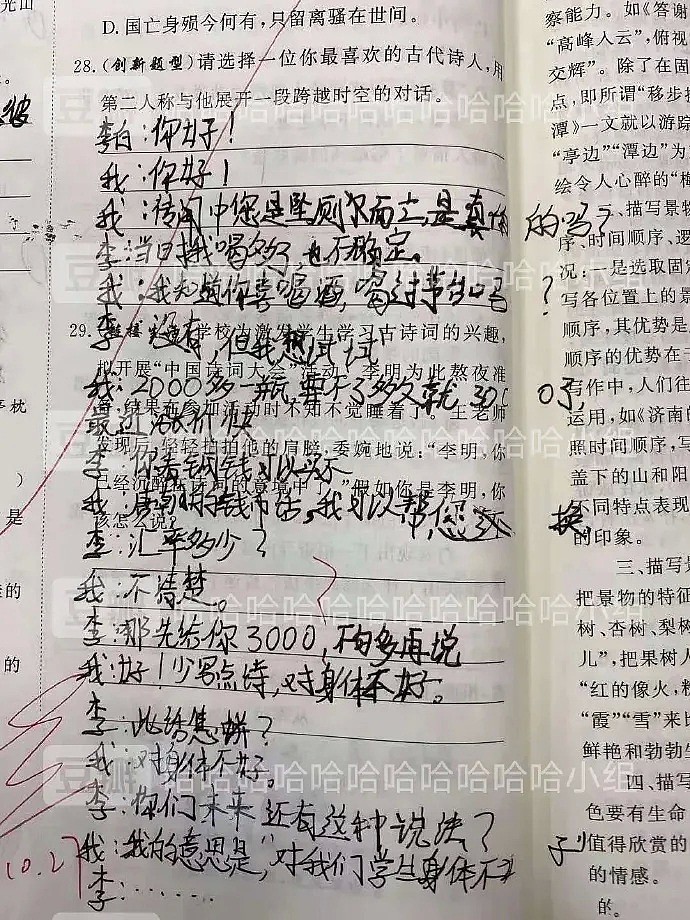 光山
D.国亡身殒今何有,只留离骚在世间。
28.(创新题型)请选择一位你最喜欢的古代诗人,用
第二人称与他展开一段跨越时空的对话。
李白:你好!
我:你好!
我:传闻中您是坠 而亡,是真的 的吗?
李:当日我喝多了,也不确定。
我:我知道你喜喝酒,喝过茅台吗?
李:没有,但我想试试!
29. 学校为激发学生学习古诗词的兴趣,
拟开展“中国诗词大会”活动,李明为此熬夜准
我:2000多一瓶,要不了多久就3000了,
备,结果在参加活动时不知不觉睡着了。王老师
最近涨价快
发现后,轻轻拍拍他的肩膀,委婉地说:“李明,你
李:你看铜钱可以不
已经沉醉在诗词的意境中了。”假如你是李明,你
我:唐朝的钱币吉,我可以帮您 换。
该怎么说?
李:汇率多少?
我:不清楚。
李:那先给你3000,不够多再说
我:好!少写点诗,对身体不好。
李:此话怎讲?
我:对身体不好。
李:你们未来还有这种说法?
我:我的意思是“对我们学生身体不 子”
李:……
10.27
彼
。
枕
)
是
的
的
察能力。如《答谢
“高峰入云”,俯视
交辉”。除了在固
点,即所谓“移步
潭》一文就以游踪
“亭边”“潭边”为
绘令人心醉的“梅
二、描写景物
序、时间顺序、逻
况:一是选取固定
写各位置上的景
顺序,其优势是
顺序的优势在于
写作中,人们往
运用,如《济南的
照时间顺序,写
盖下的山和阳
不同特点表现
的印象。
三、描写景
把景物的特征
树、杏树、梨树
儿”,把果树人
“红的像火,粉
“霞”“雪”来比
鲜艳和勃勃生
四、描写
色要有生命
值得欣赏的
的情感。
的。
豆瓣 哈哈哈哈哈哈哈哈哈哈小组